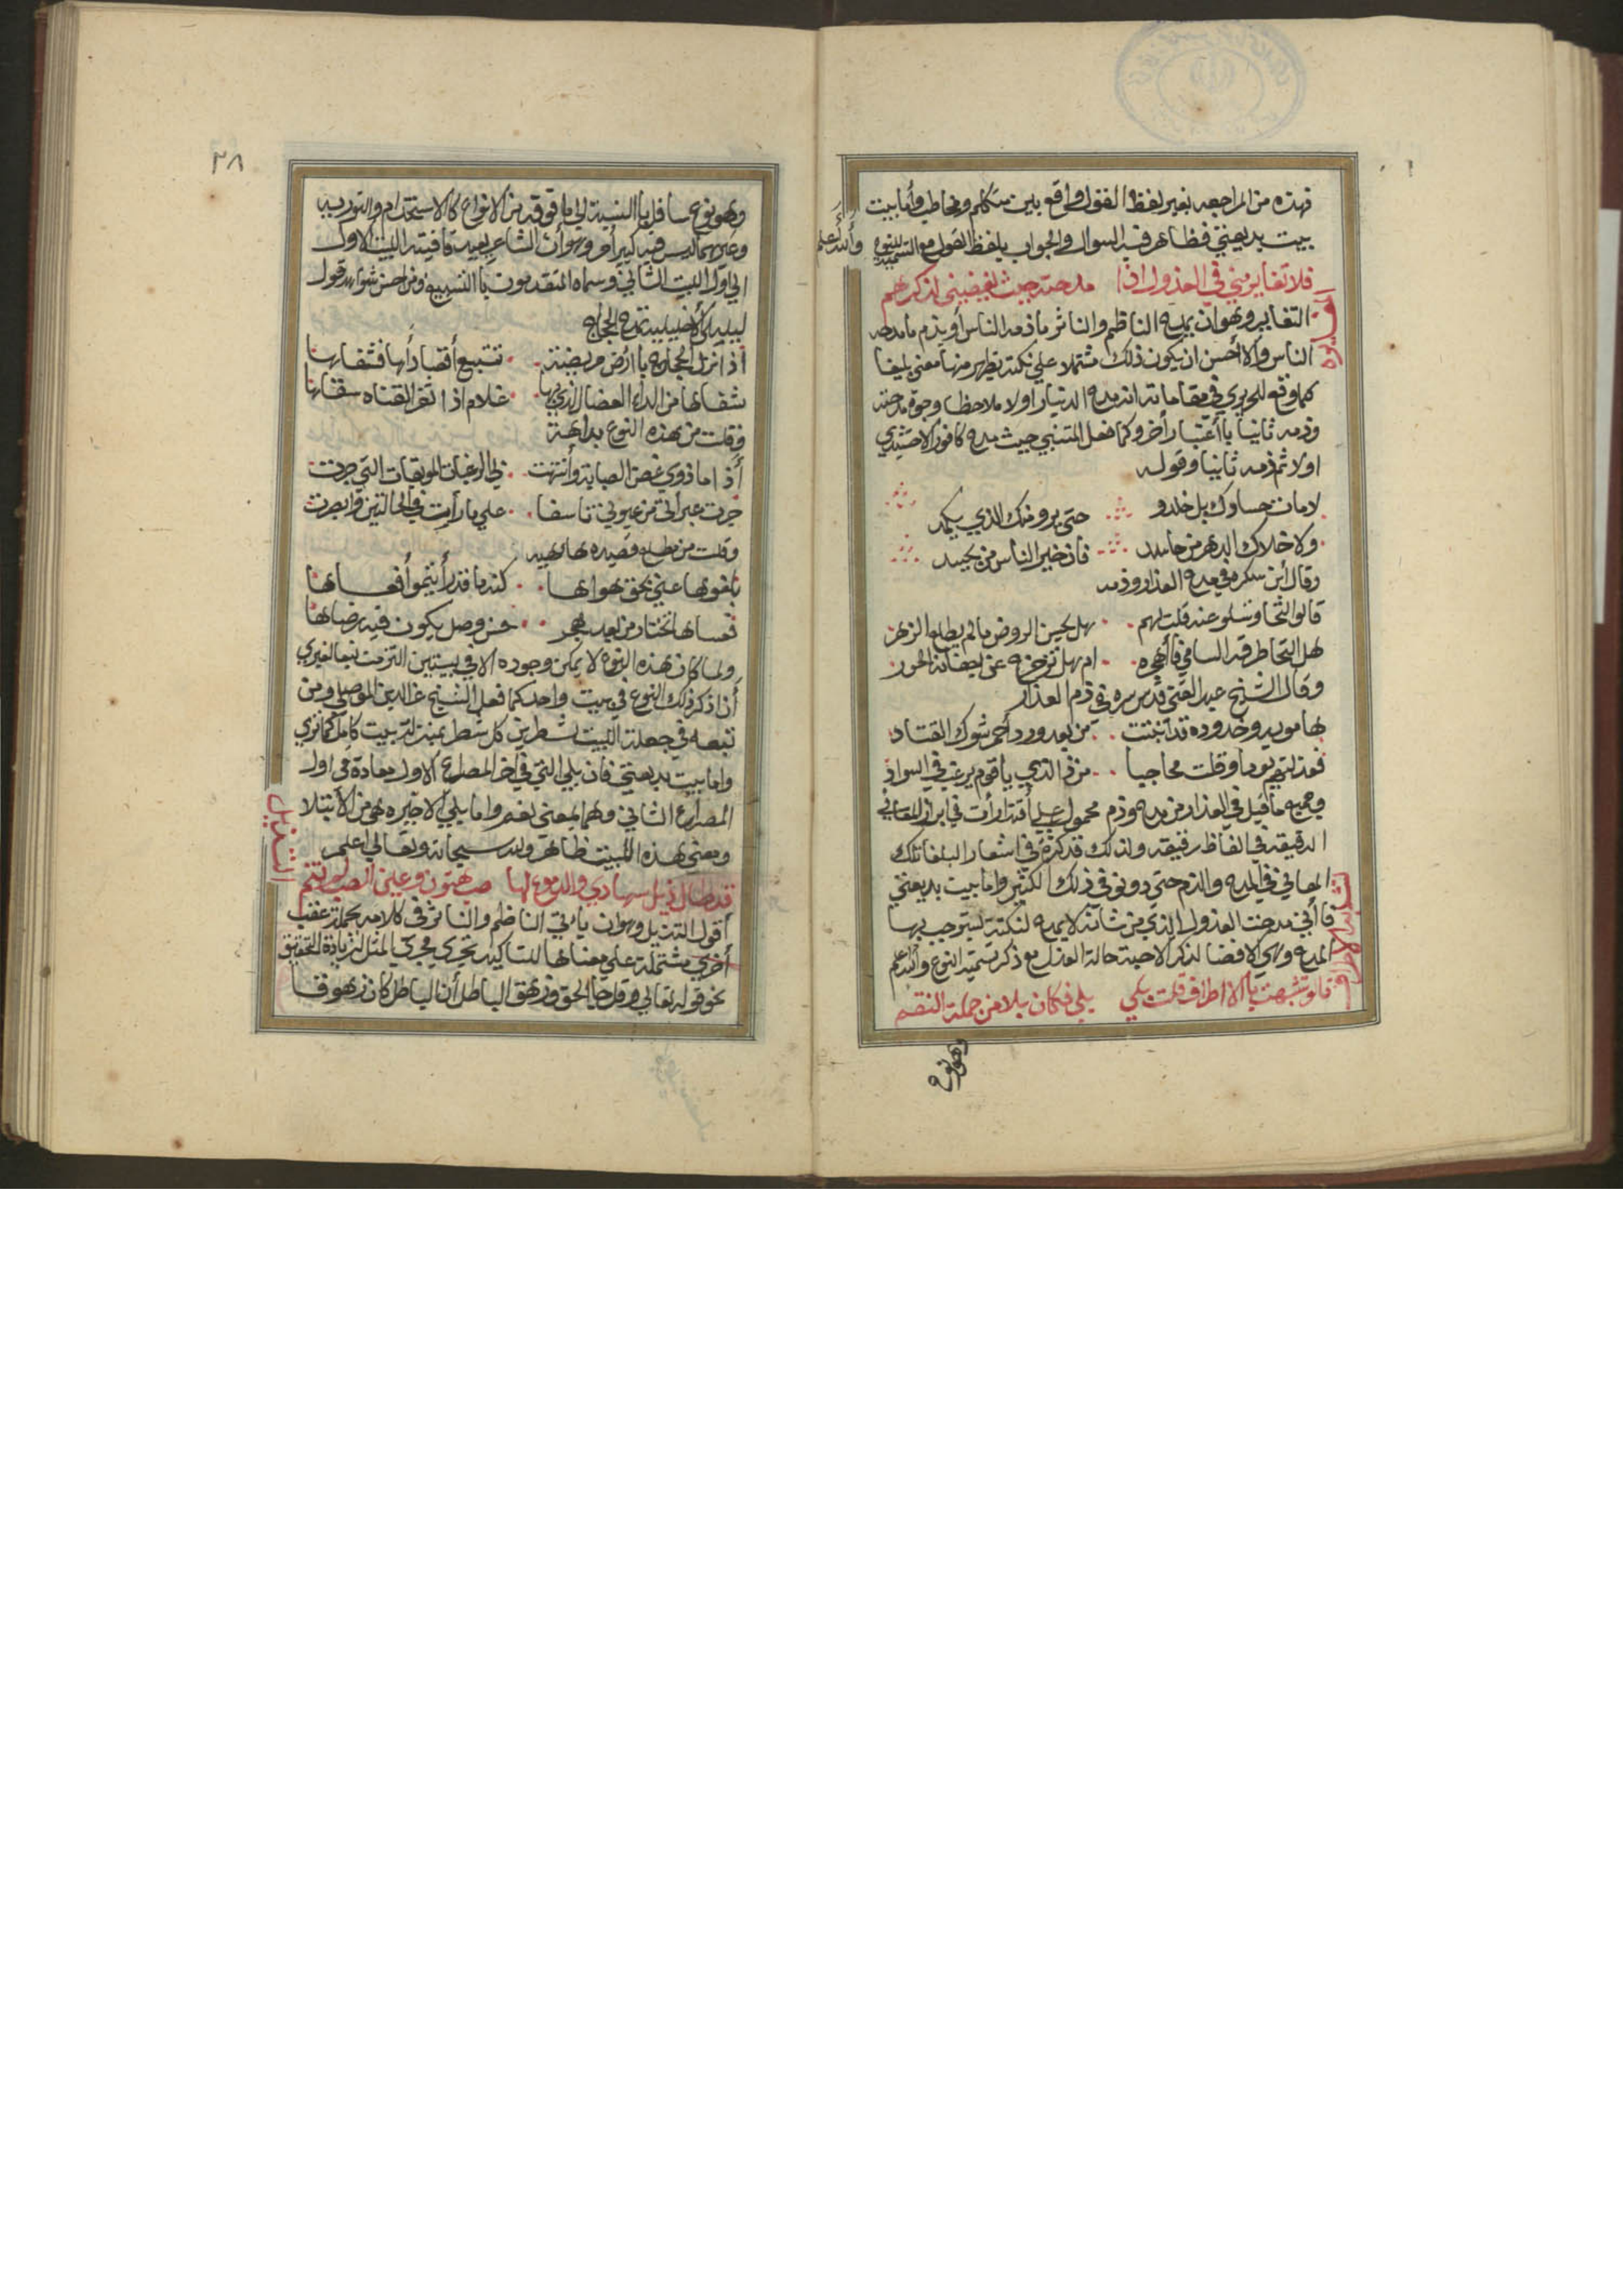 فهذه من المراجعه بغير لفظ القول واقع بين متكلم ومخاطب وأما بيت
بيت بديعيتي فظاهر فيه السوال والجواب بلفظ القول مع التسميه للنوع والله أعلم
فلا تغايروني في العذول اذا مدحته حيث يفضيني لذكرهم
التغاير وهو ان يمدح الناظم والناثر ما ذمه الناس أو يذم ما مدحه
الناس والاأحسن ان يكون ذلك مشتملا علي نكتة يظهر منها معني بليغا
كما وقع للحريري في مقاماته انه مدح الدنيار اولا ملاحظا وجوه مدحته
وذمه ثانيا باأعتبار أخر وكما فعل المتنبي حيث مدح كافور الاخشيدي
اولا ثم ذمه ثانيا وقوله
لا مات حساوك بل خلدو حتي يرو منك الذي يكمد
ولا خلاك الدهر من حاسد فان خير الناس من يحسد
وقال أبن سكره في مدح العذار وذمه
قالوا التحا وستسلو عنه قلت لهم هل يحسن الروض ما لم يطلع الزهر
هل التحا طرفه الساجي فأأهجره ام هل تزحزح عن اجفانه الحور
وقال الشيخ عبد الغني قدس سره في ذم العذار
ها مويد وخدوده قد انبتت من بعد ورد أحمر شوك القتاد
فعذلتهم يوما وقلت مجاجيا من ذ الذي يا قوم يرغب في السواد
وجميع ما قيل في العذار من مدح وذم محمول علي أقتدارأت في ابراز المعاني
الدقيقه في الفاظ رقيقه ولذلك قد كثر في اشعار البلغا تلك
المعاني في المدح والذم حتي دونو في ذلك الكثير واما بيت بديعيتي
فاأني مدحت العذول الذي من شانه لا يمدح لنكتة يستوجب بها
المدح وهي الافضا لذكر الاحبة حالة العذل مع ذكر تسمية النوع والله أعلم
قالو تشبهت باالاطراف قلت بلي بلي فكان بلا من جملة النقم
وهو نوع
٣٨
وهو نوع سافل باالنسبة الي ما فوقه من الانواع كالاستخدام والتوريه
وغيرهما ليس فيه كبير أمر وهو أن الشاعر يعيد قافية البيت الاول
الي أول البيت الثاني وسماه المتقدمون باالتسبيغ ومن احسن شواهد قول
ليلي الأخيلية تمدح الحجاج
أذا نزل الحجاج باأرض مريضة تتبع أقصا دأها فشفاها
شفاها من الداء العضال الذي بها غلام اذا هز القناه سقاها
وقلت من هذه النوع بداهة
جرت عبرأتي من عيوني تاسفا علي ما رأيت في الحالتين وابصرت
وقلت من مطلع قصيده
فعساها تختار من بعد هجر حسن وصل يكون فيه رضاها
ولما كان هذه النوع لا يمكن وجوده الا في بيتين التزمت تبعا لغيري
أن اذكر ذلك النوع في بيت واحد كما فعل الشيخ عز الدين الموصلي ومن
تبعه في جعلة البيت شطرين كل شطر بمنزلة بيت كامل كما تري
واما بيت بديعيتي فان بلي التي في اخر المصراع الاول معادة في اول
المصراع الثاني وهما بمعني نعم واما بلي الاخيره هي من الابتلا
ومعني هذه البيت ظاهر والله سبحانه وتعالي اعلم
التذييل
أقول التذييل وهو ان ياتي الناظم والناثر في كلامه بجملة عقب
أخري مشتملة علي معناها للتاكيد تجري مجري المثل لزيادة التحقيق
نحو قوله تعالي وقل جا الحق وزهق الباطل أن الباطل كان زهوقا